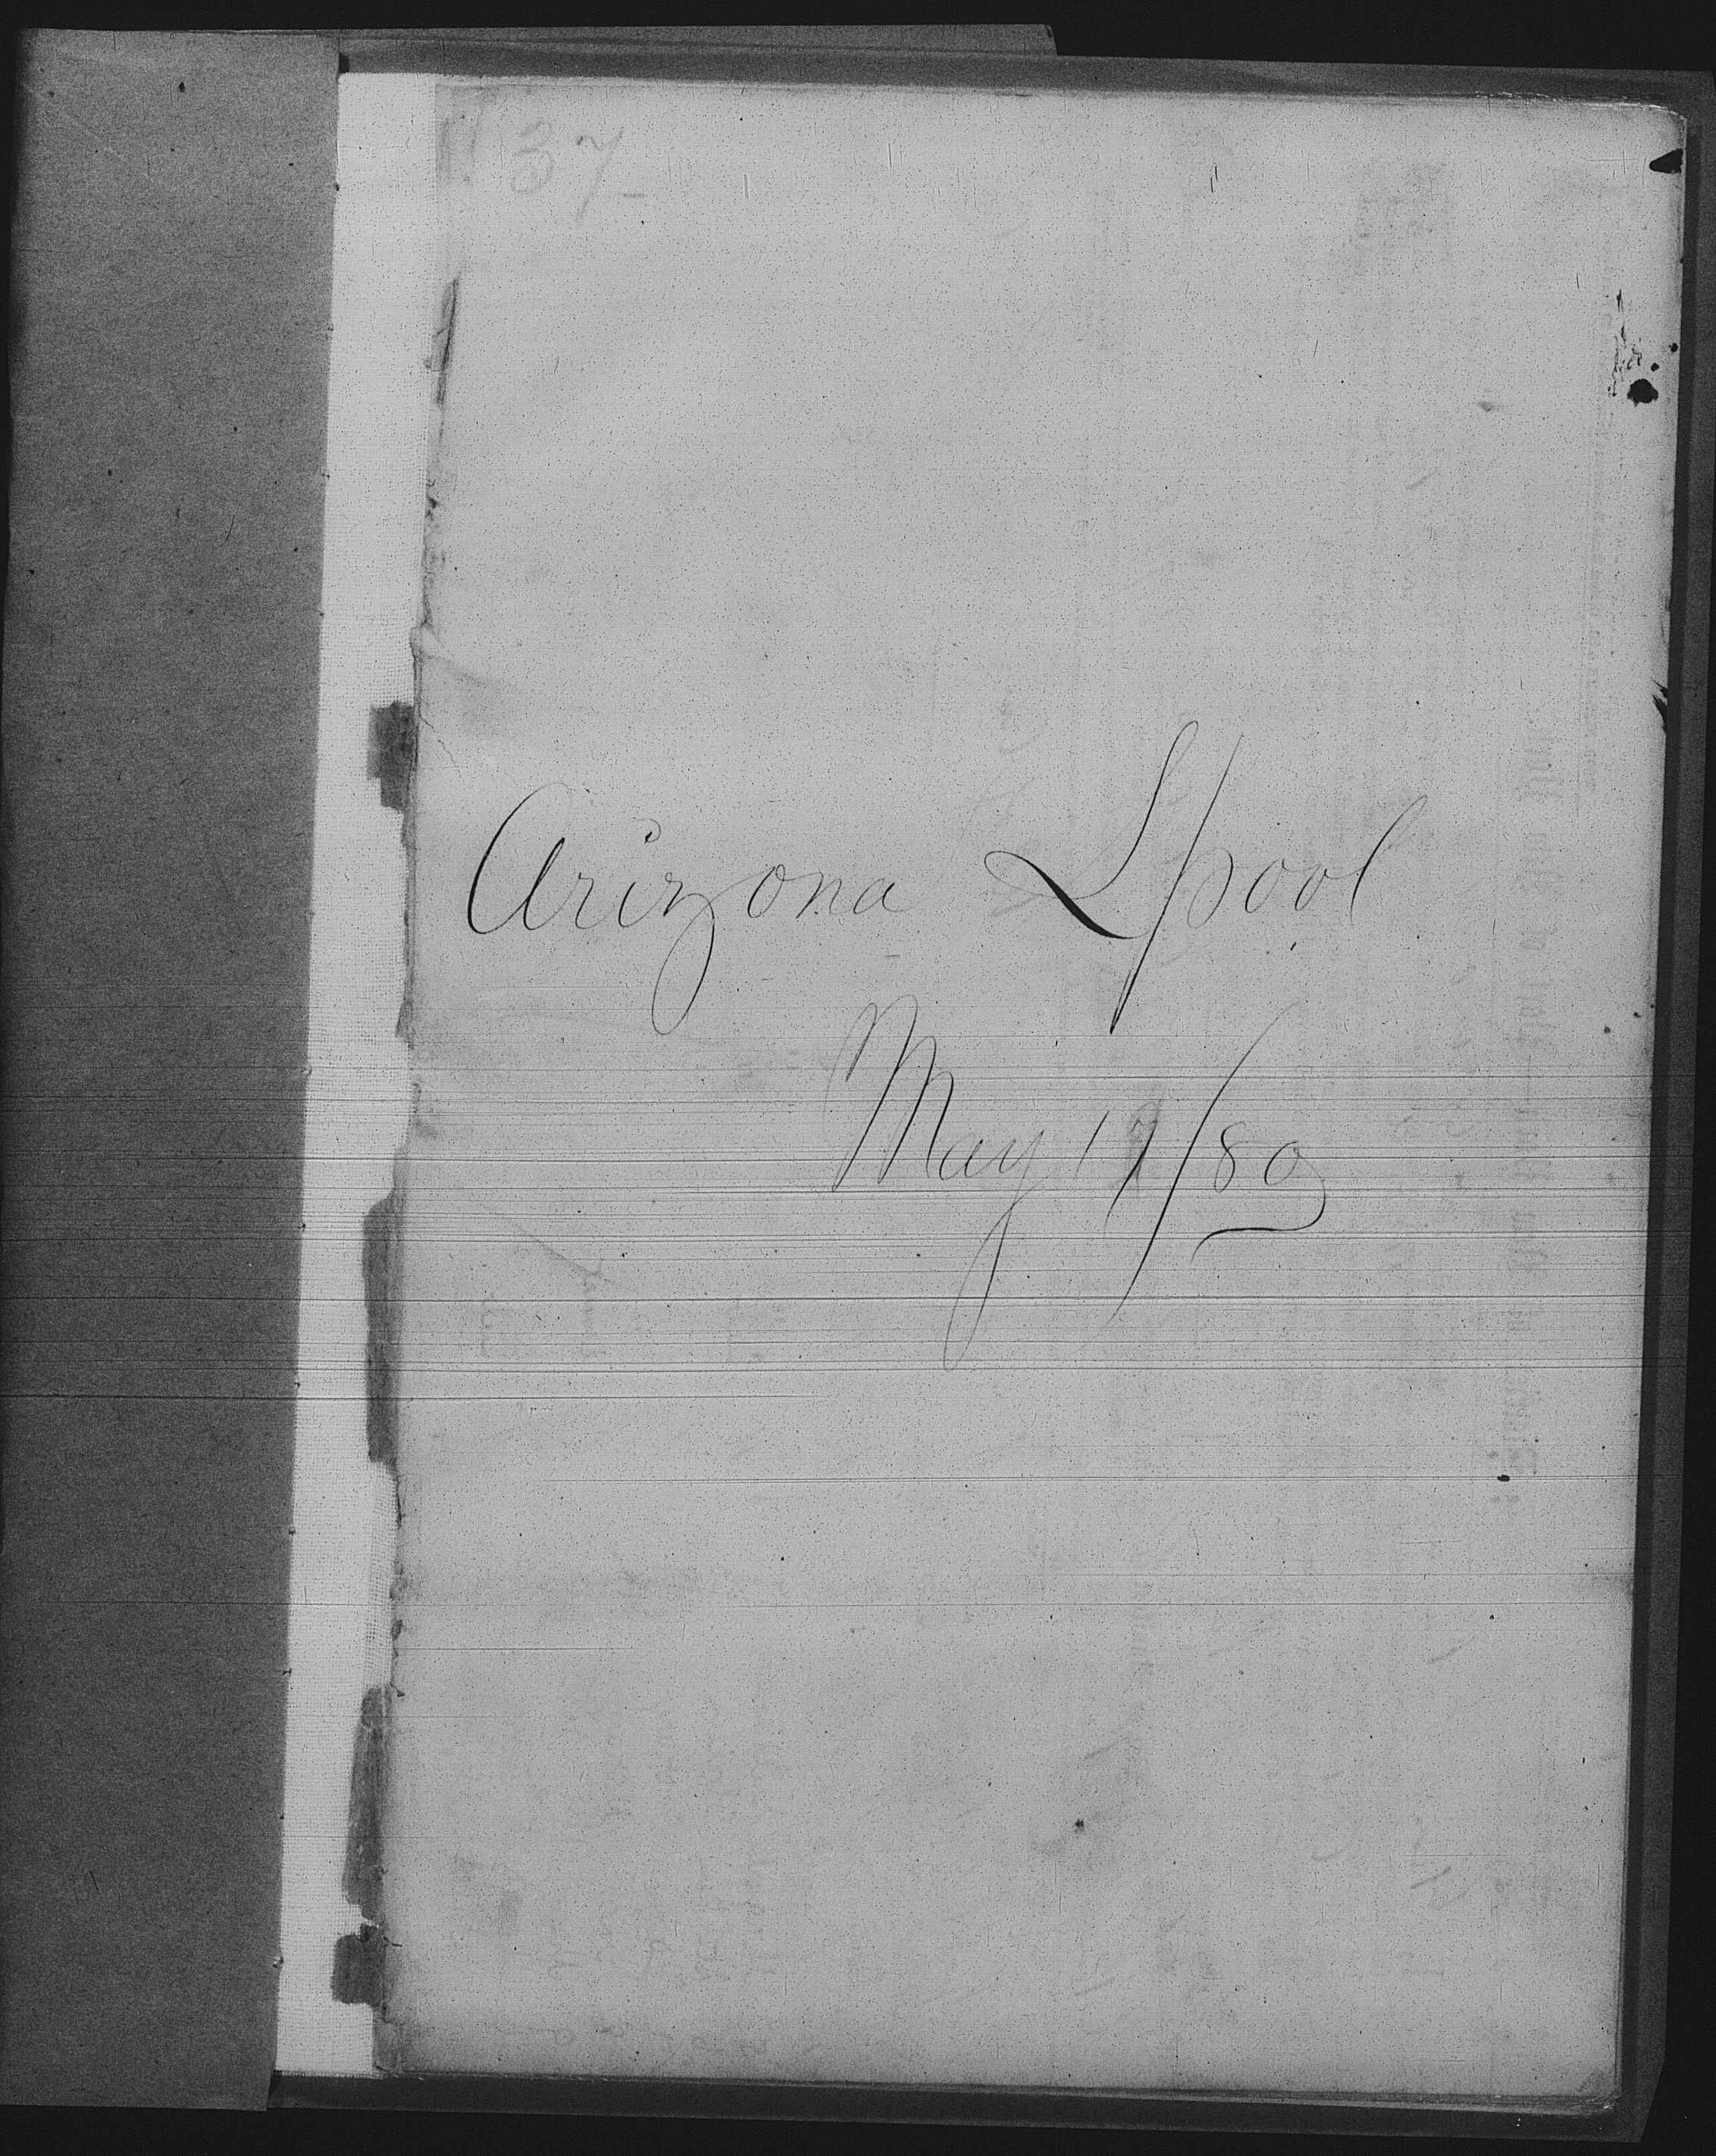 37
Arizona L/pool
May 17/80